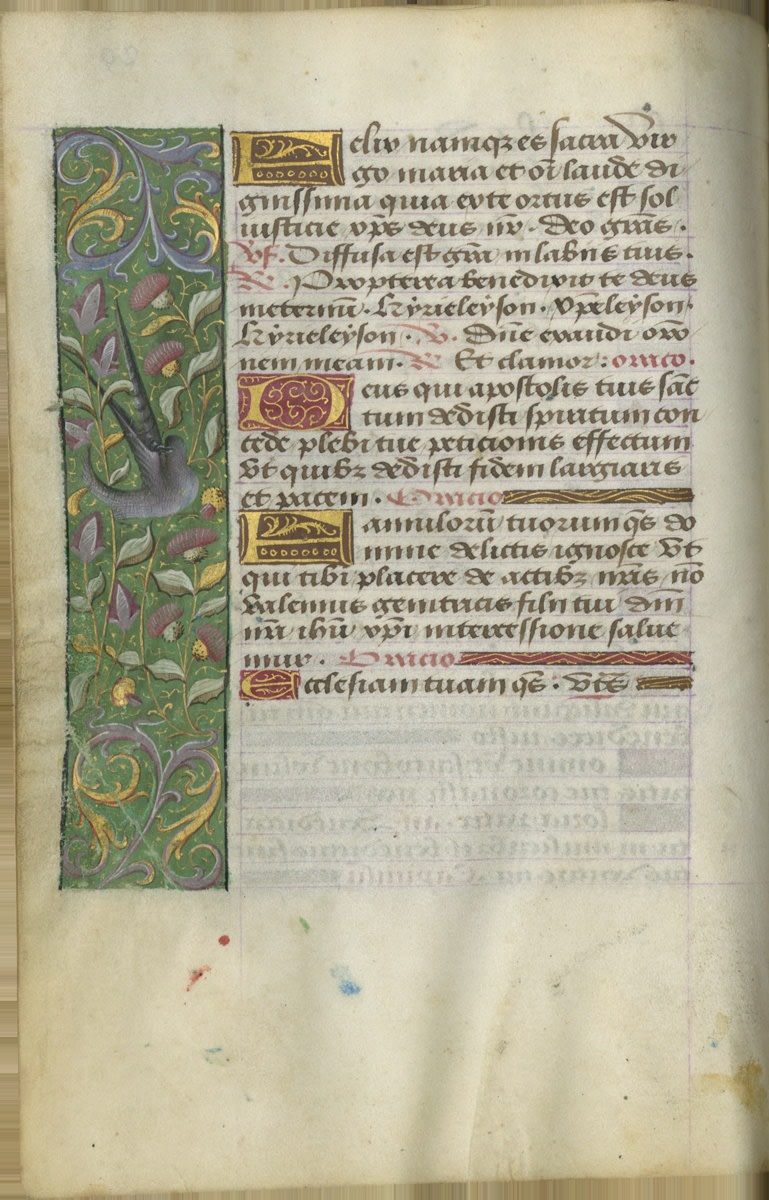 Felix namqz es sacra vir
go maria et oī laude di
gnissima quia exte ortus est sol
iusticie xp̄s deus nr̄ . Deo grās .
V̄s . Diffusa est grā in labiis tuis .
R̄ . Propterea benedixit te deus
ineternū . Kyrieleyson . xp̄eleyson .
Kyrieleyson . V̄ . Dn̄e exaudi orō
nem meam . R̄ Et clamor : oracio .
Deus qui apostolis tuis sāc
tum dedisti spiritum con
cede plebi tue peticionis effectum
vt quibz dedisti fidem largiaris
et pacem . Oracio
Famulorū tuorum qs̄ do
mine delictis ignosce vt
qui tibi placere de actibz nr̄is nō
valemus genitricis filii tui dn̄i
nr̄i ihū xp̄i intercessione salue
mur . Oracio
Ecclesiam tuam qs̄ . vts̄